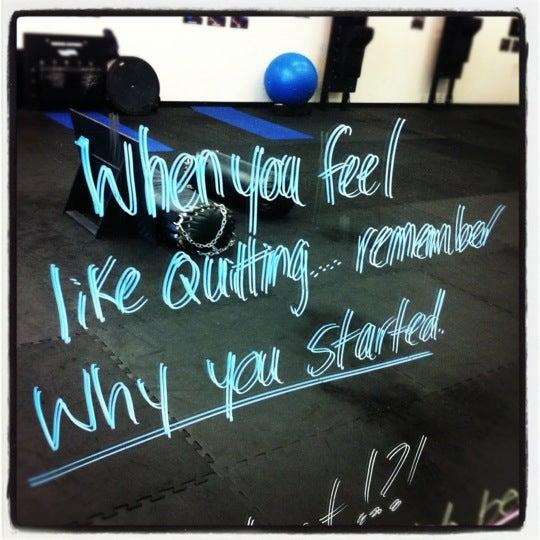 When you feel
like Quitting..... remember
Why you started.
!?!